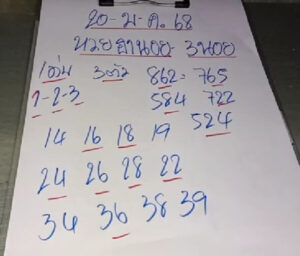 20-ม-ค. 68
หวยฮานอย 3นอย
เด่น 3ตัว 862- 765
1-2-3 584 722
524
14 16 18 19
24 26 28 22
34 36 38 39